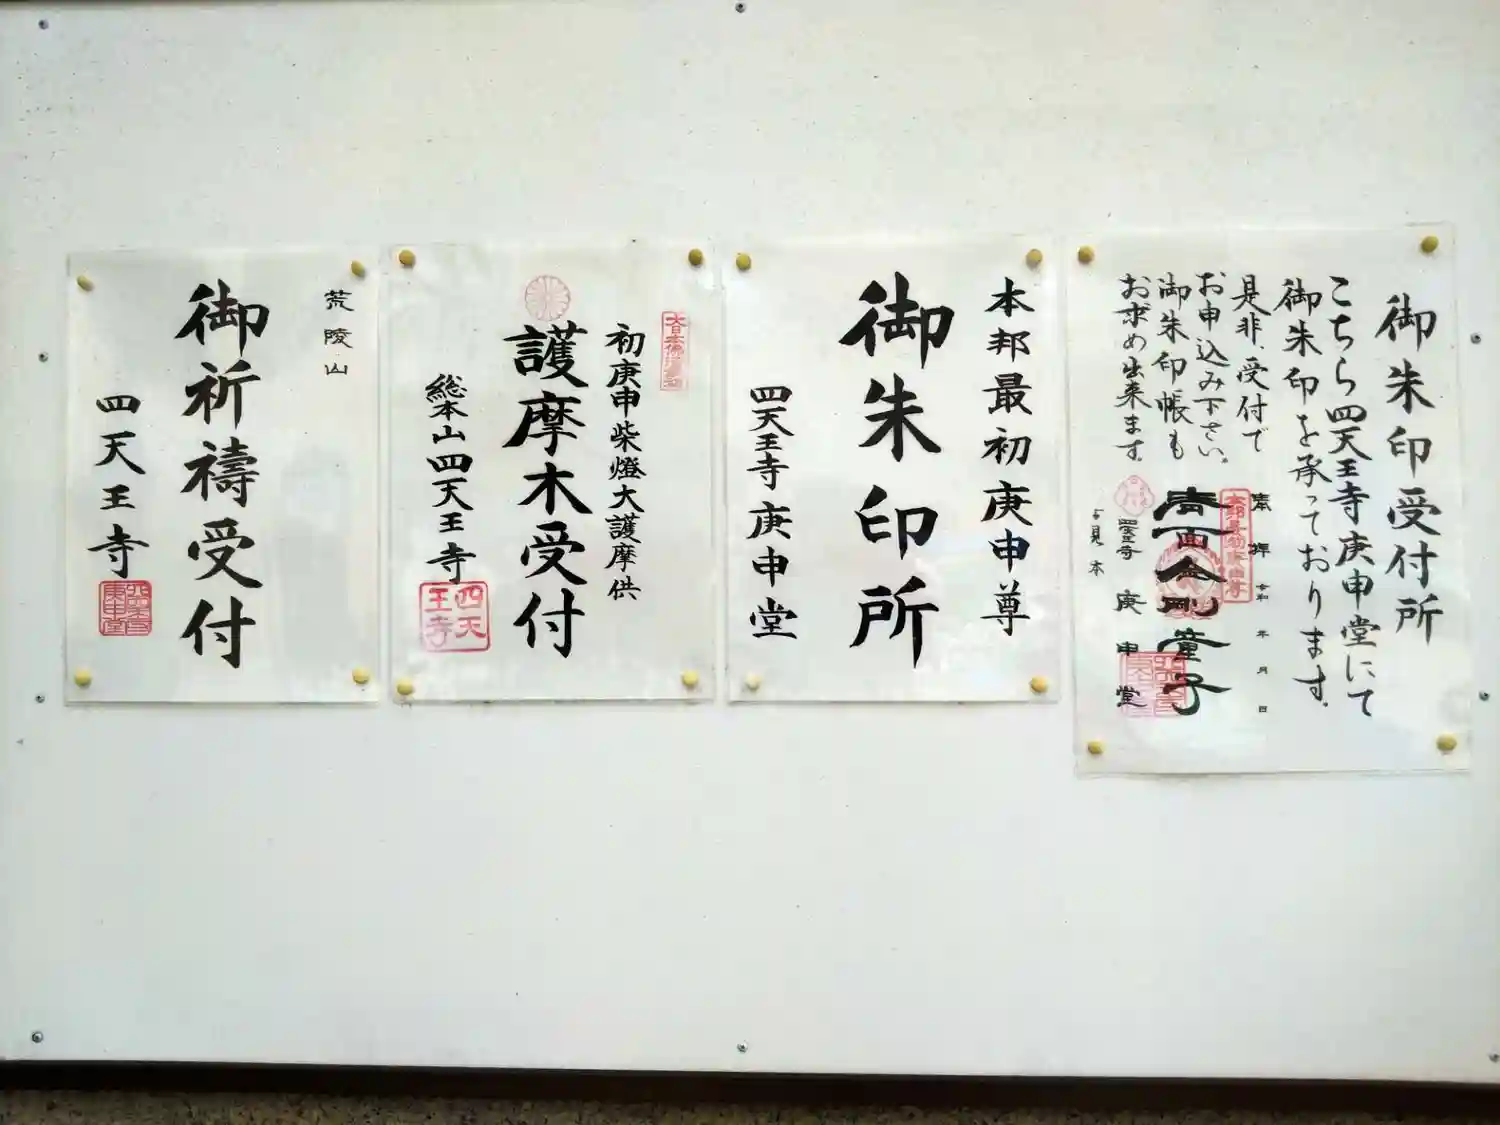 御朱印受付所
こちら四天王寺庚申堂にて
御朱印を承っております。
是非、受付で
お申込み下さい。
御朱印帳も
お求め出来ます。
奉拝 令和 年 月 日
青面金剛童子
四天王寺 庚申堂
見本
本邦最初庚申尊
御朱印所
四天王寺庚申堂
初庚申柴燈大護摩供
護摩木受付
総本山四天王寺
四天王寺
荒陵山
御祈禱受付
四天王寺